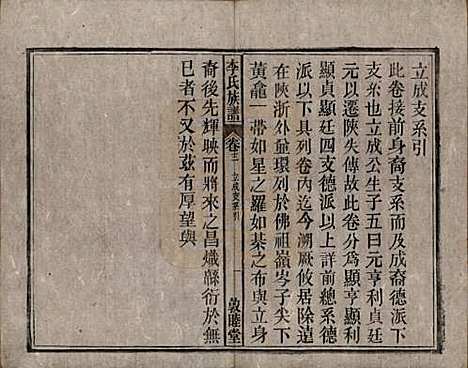 立成支系引
此卷接前身裔支系而及成裔德派下
支系也立成公生子五曰元亨利貞立
元以遷陝失傳故此卷分為顯亨顯利
顯貞顯廷四支德派以上詳前總系德
派以下具列卷內迄今溯厥攸居除遠
在陝浙外蓋環列於佛祖嶺岑子尖下
黃龕一帶如星之羅如棊之布與立身
裔後先輝映而將來之昌熾緜衍於無
已者不又於茲有厚望與
李氏族譜
卷三 立成支系引
一
敦睦堂